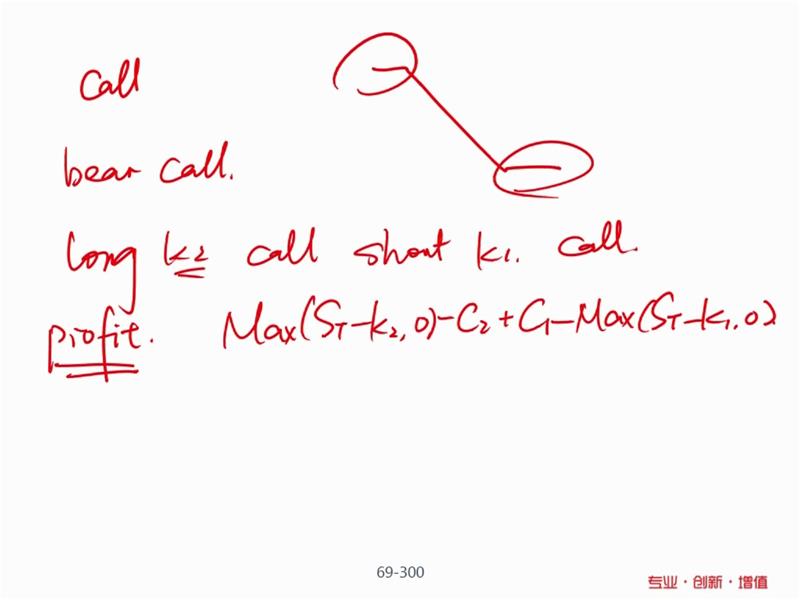 Call
bear call.
long k2 call short k1. call.
profit. Max(ST-k2,0)-C2+C1-Max(ST-k1,0)
69-300
专业·创新·增值